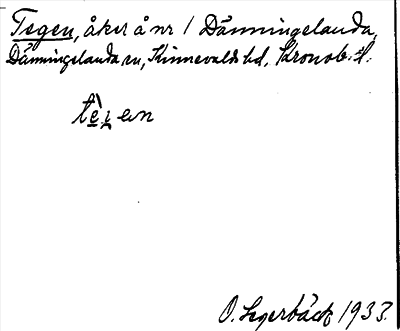 Tegen, åker å nr 1 Dänningelanda,
Dänningelanda sn, Kinnevalds hd, Kronob. l.
te̱i̯en
O. Segerbäck 1933.